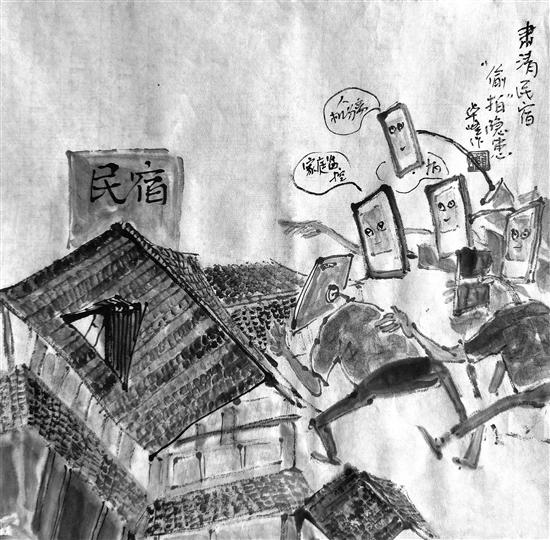 肃清民宿
“偷拍”隐患
人
机分离
家庭监
控
拍
民宿